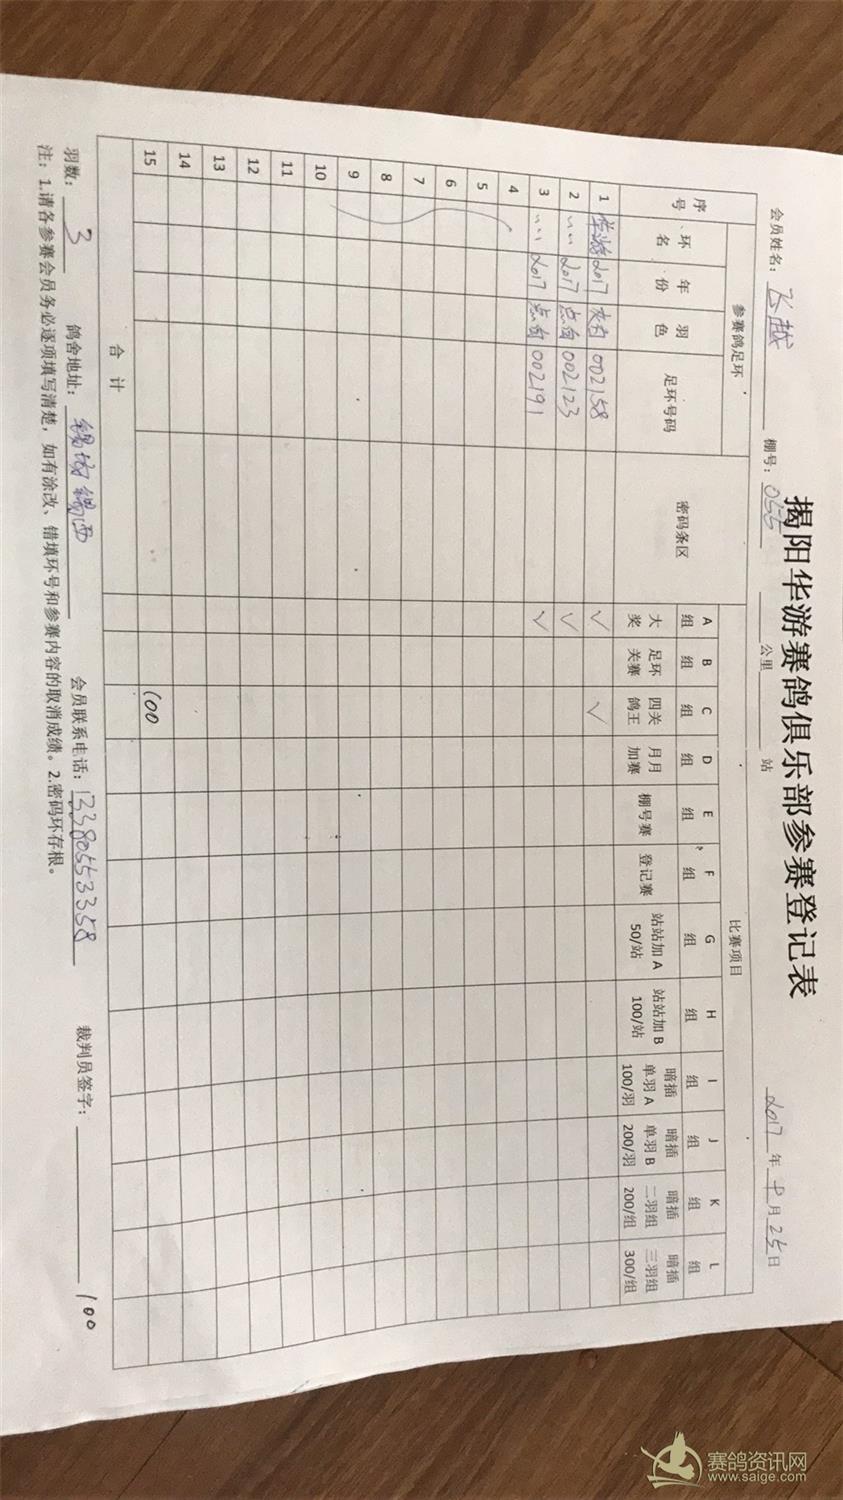 揭阳华游赛鸽俱乐部参赛登记表
会员姓名：飞越 棚号：055 公里 站 2017年 月25日
序号 参赛鸽足环 密码条区 比赛项目
环名 年份 羽色 足环号码 A组 B组 C组 D组 E组 F组 G组 H组 I组 J组 K组 L组
大奖 足环关赛 四关鸽王 月月加赛 棚号赛 登记赛 站站加A 50/站 站站加B 100/站 暗插单羽A 100/羽 暗插单羽B 200/羽 暗插二羽组 200/组 暗插三羽组 300/组
1 华游 2017 灰白 002158 ✓ ✓
2 ،، 2017 点白 002123 ✓
3 ،، 2017 点白 002191 ✓
4
5
6
7
8
9
10
11
12
13
14
15 100
合计
羽数：3 鸽舍地址： 会员联系电话：13380553358 裁判员签字： 100
注：1.请各参赛会员务必逐项填写清楚，如有涂改、错填环号和参赛内容的取消成绩。2.密码环存根。
赛鸽资讯网
www.saige.com